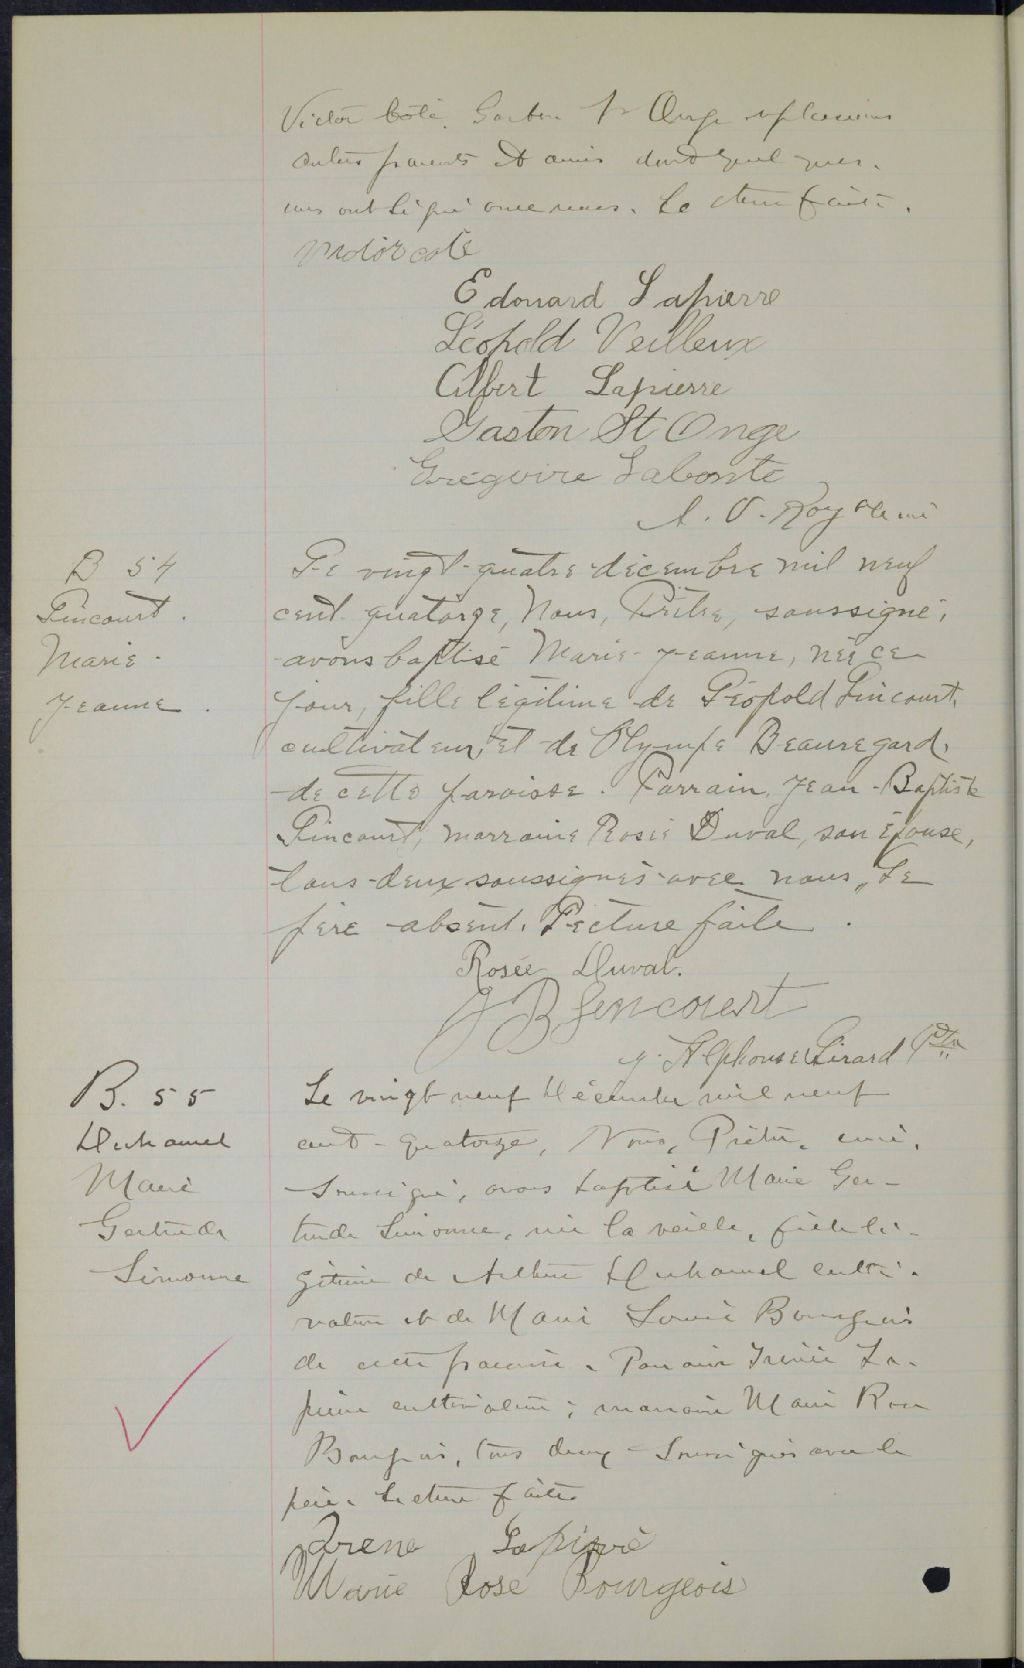 Victor Coté, Gaston St Onge et plusieurs
autres parents et amis dont quelques-
uns ont signé avec nous. Lecture faite.
Victor coté
Edouard Lapierre
Léopold Veilleux
Albert Lapierre
Gaston St Onge
Grégoire Labonté
A. O. Roy Ptre curé
B 54
Fincourt.
Marie-
Jeanne.
Le vingt-quatre décembre mil neuf
cent quatorze, Nous, Prêtre, soussigné,
avons baptisé Marie-Jeanne, née ce
jour, fille légitime de Léopold Fincourt,
cultivateur, et de Olympe Beauregard,
de cette paroisse. Parrain, Jean-Baptiste
Fincourt, marraine Rosée Duval, son épouse,
tous deux soussignés avec nous, Le
père absent. Lecture faite.
Rosée Duval.
J B Fencourt
J. Alphonse Girard Ptre
B. 55
Duhamel
Marie
Gertrude
Simonne
Le vingt neuf Décembre mil neuf
cent-quatorze, Nous, Prêtre, curé,
soussigné, avons baptisé Marie Ger-
trude Simonne, née la veille, fille lé-
gitime de Arthur Duhamel culti-
vateur et de Marie Louise Bourgeois
de cette paroisse. Parrain Irénée La-
pierre cultivateur; marraine Marie Rose
Bourgeois, tous deux soussignés avec le
père. Lecture faite.
Irené Lapierre
Marie Rose Bourgeois